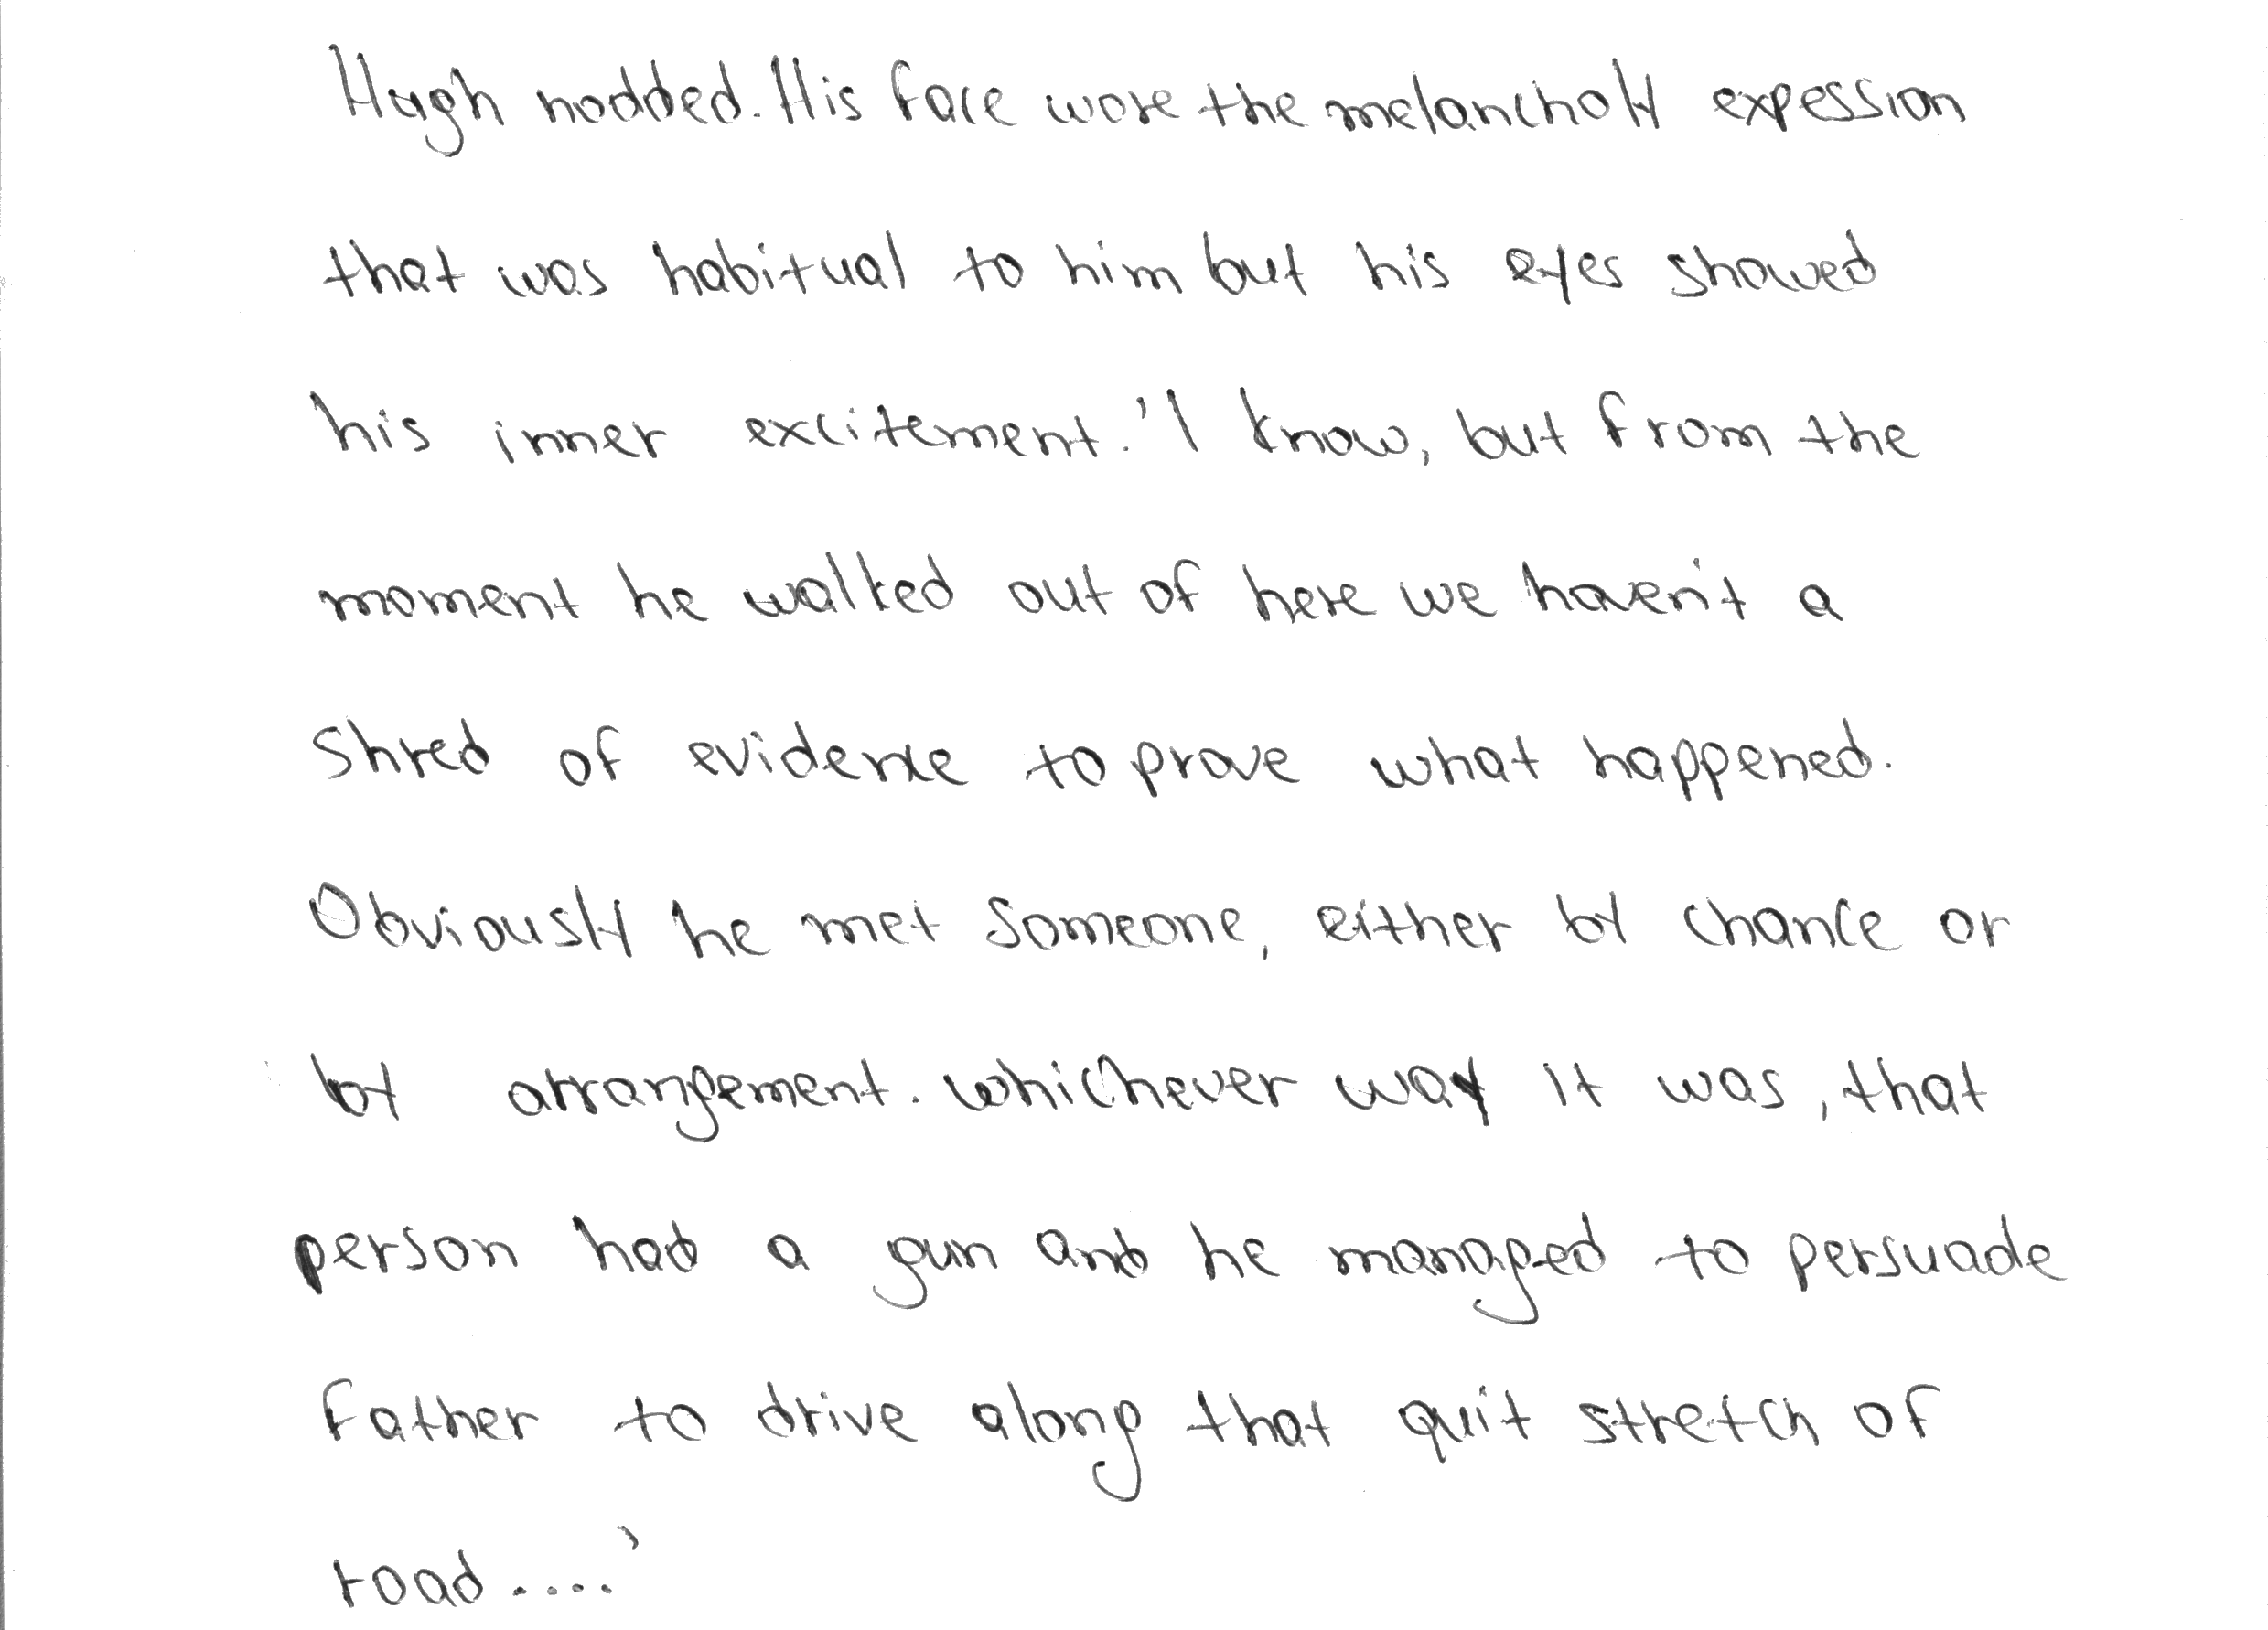 Hugh nodded. His face wore the melancholy expession
that was habitual to him but his eyes showed
his inner excitement. 'I know, but from the
moment he walked out of here we haven't a
shred of evidence to prove what happened.
Obviously he met someone, either by chance or
by arrangement. whichever way it was, that
person had a gun and he managed to persuade
Father to drive along that quit stretch of
road....'